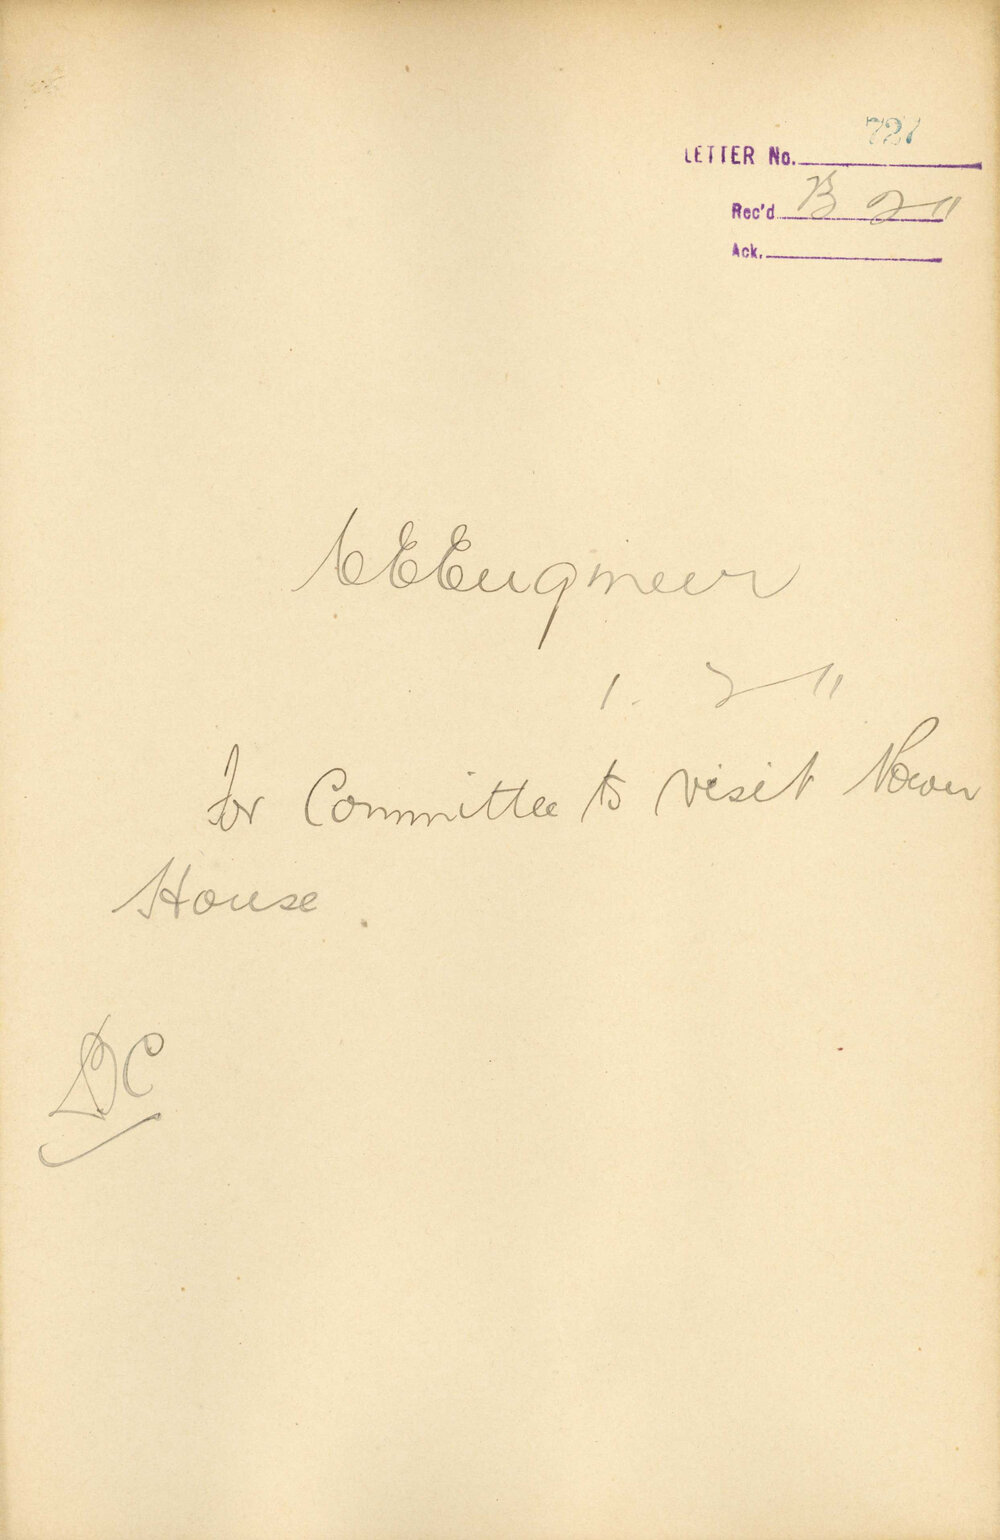 LETTER No. 721
Rec'd B 2 11
Ack.
C E Engineer
1. 2 11
For Committee to visit Power
House
DC